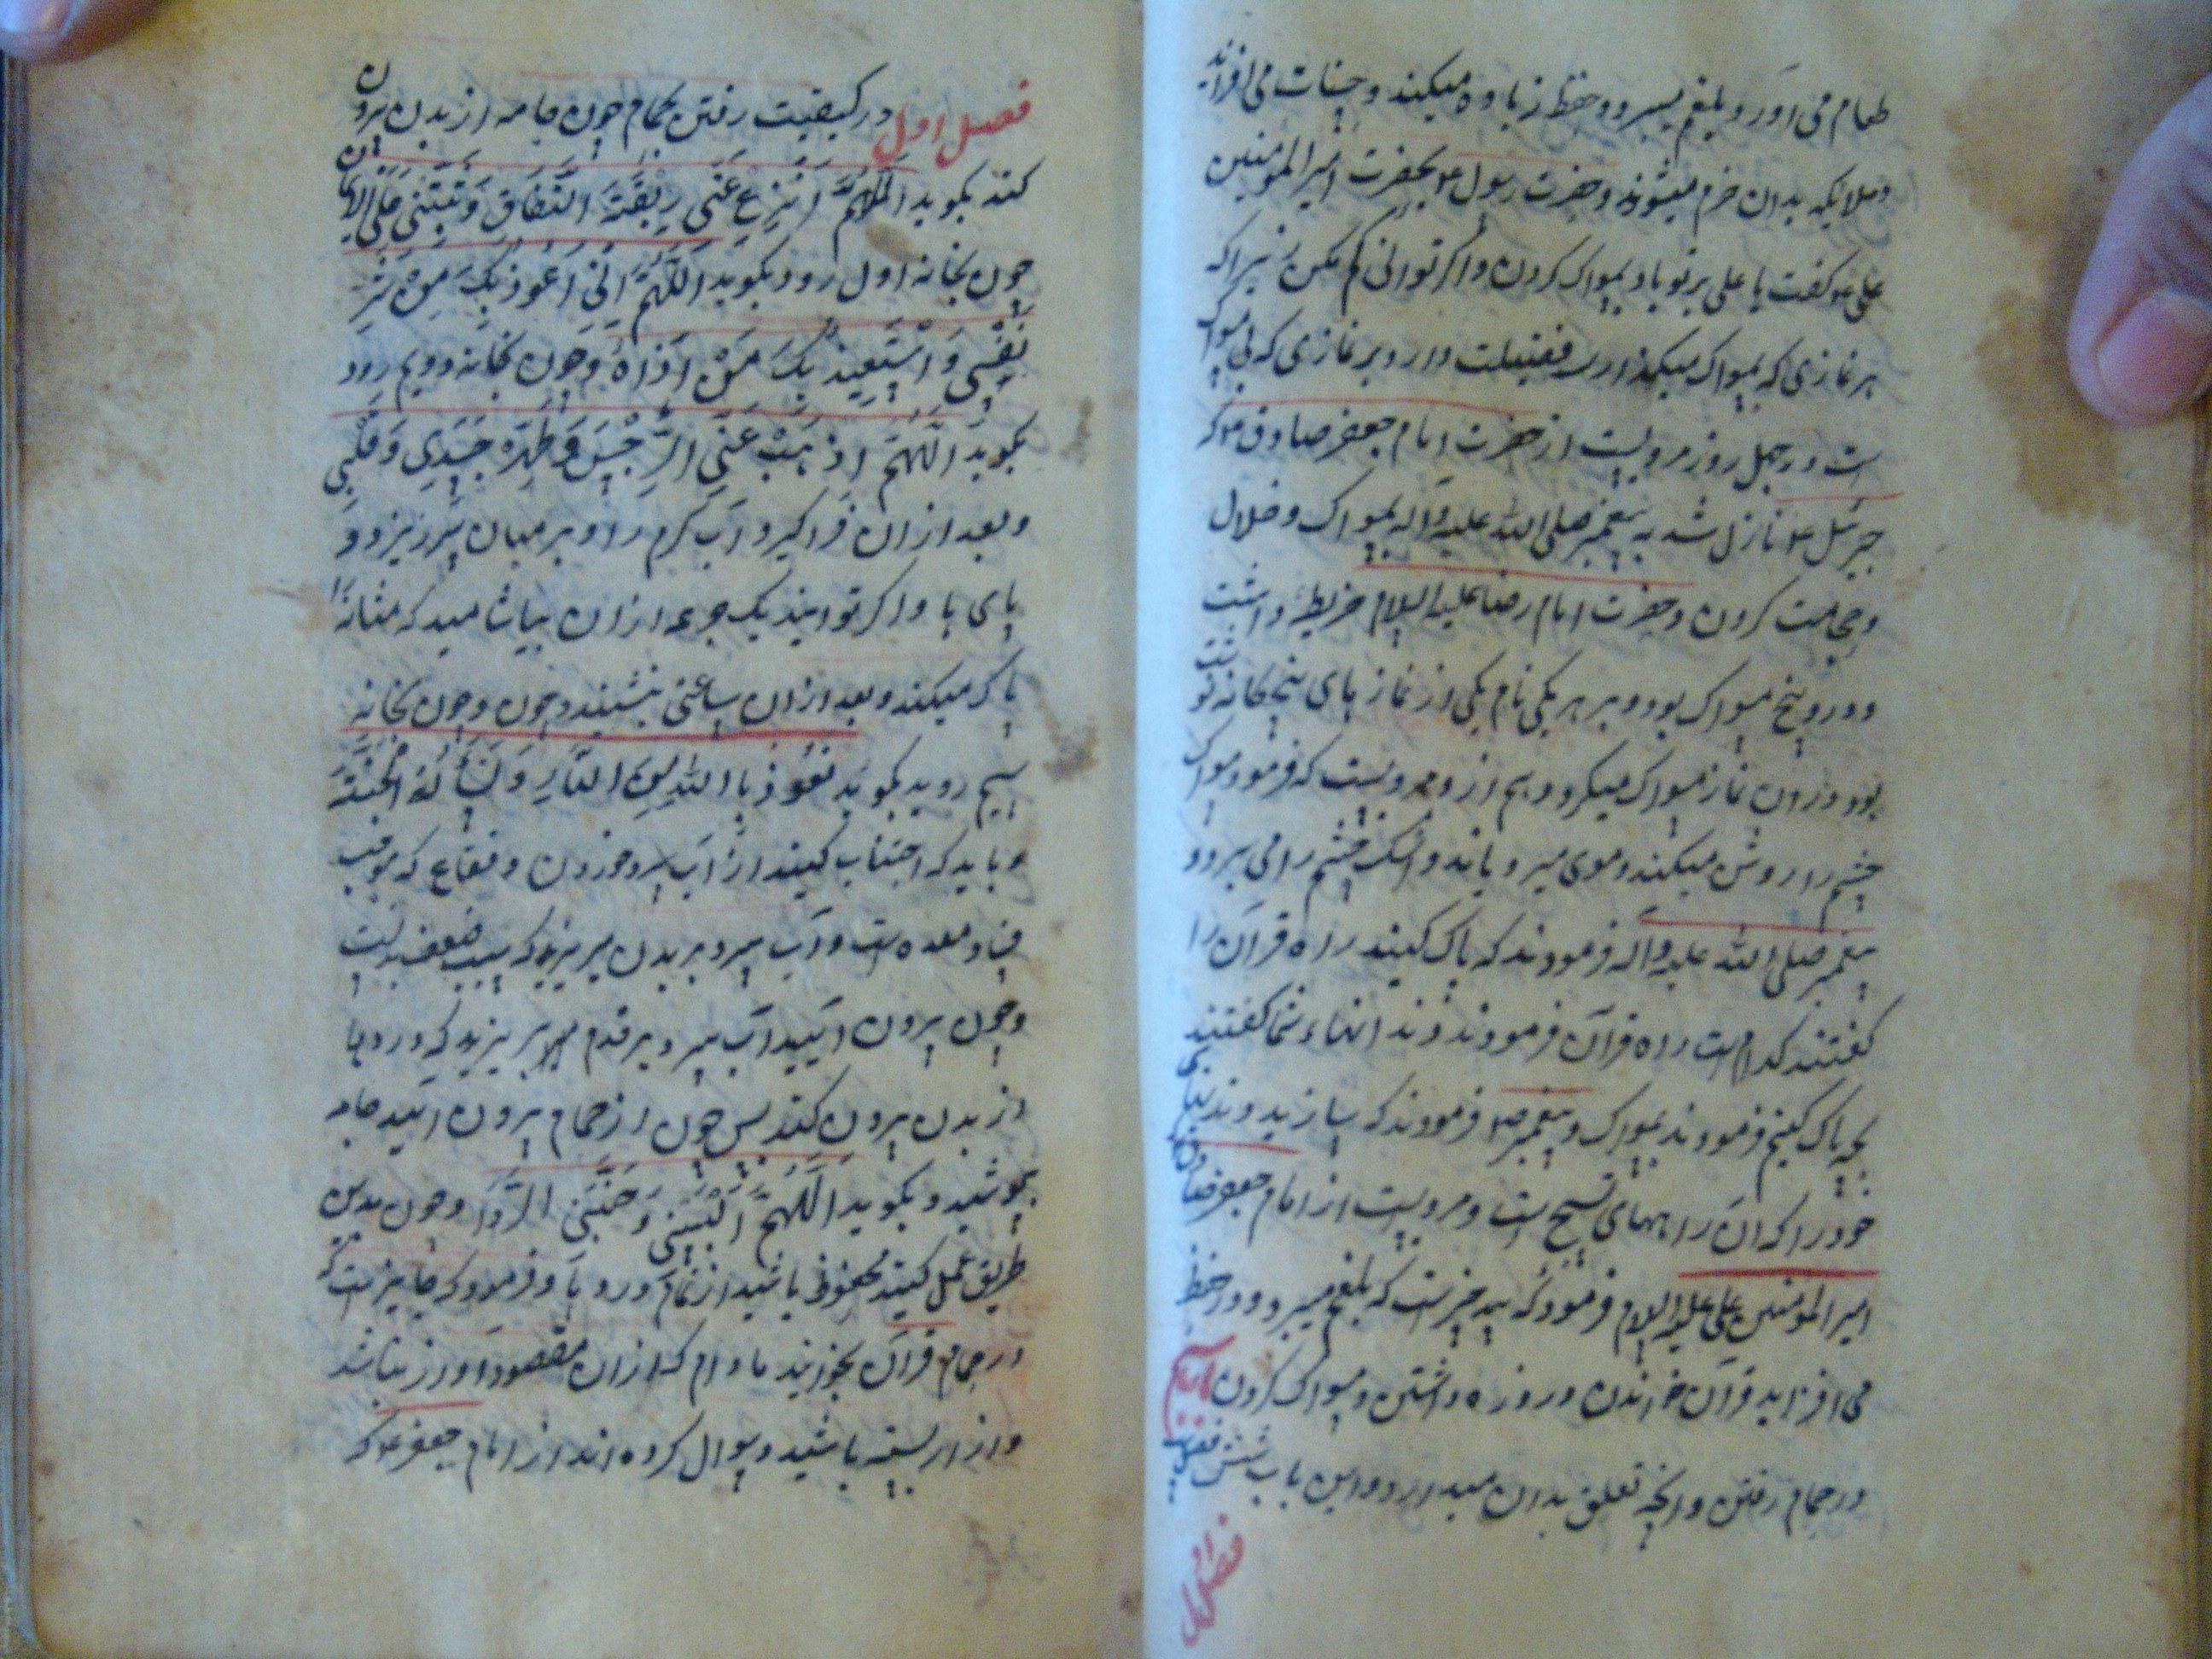 طعام می آورد و بلغم میبرد و حفظ زیاده میکند و حسنات می افزاید
و ملایکه بدان خرم میشوند و حضرت رسول ص بحضرت امیر المومنین
علی ع گفت یا علی بر تو باد بمسواک کردن و اگر توانی کم مکن زیراکه
هر نمازی که بمسواک میکنذاری فضیلت دارد بر نمازی که بی مسواک
ست در چهل روز مرویست از حضرت امام جعفر صادق ع که
جبرئیل ع نازل شد به پیغمبر صلی الله علیه و آله بمسواک و خلال
و حجامت کردن و حضرت امام رضا علیه السلام خریطه داشت
و درو پنج مسواک بود و بر هر یکی نام یکی از نماز های پنجکانه نوشته
بود و زان نماز مسواک میکرد و هم ازو مرویست که فرمود مسواک
چشم را روشن میکند و موی میرویاند و اشک چشم را می برد و
پیغمبر صلی الله علیه و اله فرمودند که پاک کنید راه قرآن را
کفتند کدام است راه قرآن فرمودند دندانهاء شما کفتند
بچه پاک کنیم فرمودند بمسواک و پیغمبر ص فرمودند که بسازید دندانهای
خود را که آن راههای تسبیح است و مرویست از امام جعفر صادق
امیر المومنین علی علیه السلام فرمود که سه چیزست که بلغم میبرد و در حفظ
می افزاید قرآن خواندن و روزه داشتن و مسواک کردن
در حمام رفتن و انچه تعلق بدان میدارد و این باب شش فصلست
فصل اول
فصل اول در کیفیت رفتن بحمام چون جامه از بدن بیرون
کنند بکوید اَللّهُمَّ اَنْزِعْ عَنّی رِبْقَةَ النِّفاقِ وَ ثَبِّتْنی عَلَی الایمان
چون بخانه اول رود بکوید اَللّهُمَّ اِنّی اَعُوذُ بِکَ مِنْ شَرِّ
نَفْسی وَ اَسْتَعیذُ بِکَ مِنْ اَذاهُ و چون بخانه دویم رود
بکوید اَللّهُمَّ اَذْهِبْ عَنّی الرِّجْسَ وَ طَهِّرْ جَسَدی وَ قَلْبی
و بعد ازان فراکیرد آب کرم را و بر میان سر ریزد و
پای ها و اکر توانید یک جرعه ازان بیاشامید که مثانه را
پاک میکند و بعد ازان ساعتی بنشیند و چون و چون بخانه
سیم روید بکوید نَعُوذُ بِاللهِ مِنَ النّارِ وَ نَسْأَلُهُ الْجَنَّةَ
و باید که اجتناب کنید از آب سرد خوردن و فقاع که موجب
فساد معده است و آب سرد بر بدن مریزید که سبب ضعف بدنست
و چون بیرون آیید آب سرد بر قدم بریزید که دردها
از بدن بیرون کند پس چون از حمام بیرون آیید جامه
بپوشید و بکوید اَللّهُمَّ اَلْبِسْنی وَ جَنِّبْنی الرَّدی و چون بدین
طریق عمل کنید محفوظ باشید از تمام دردها و فرمود که جایز است که
در حمام قرآن بخوانید مادام که ازان مقصود آواز نباشد
و ازار بسته باشید و سوال کرده اند از امام جعفر ع که